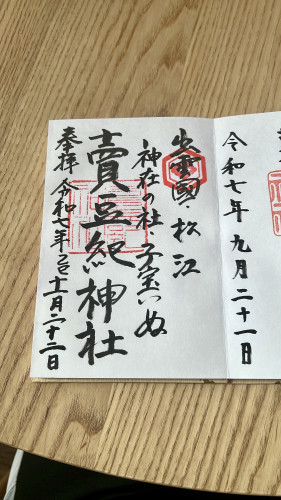 令和七年九月二十一日
出雲國松江
神在の社 子宝いぬ
賣豆紀神社
奉拝 令和七年乙巳十一月二十二日